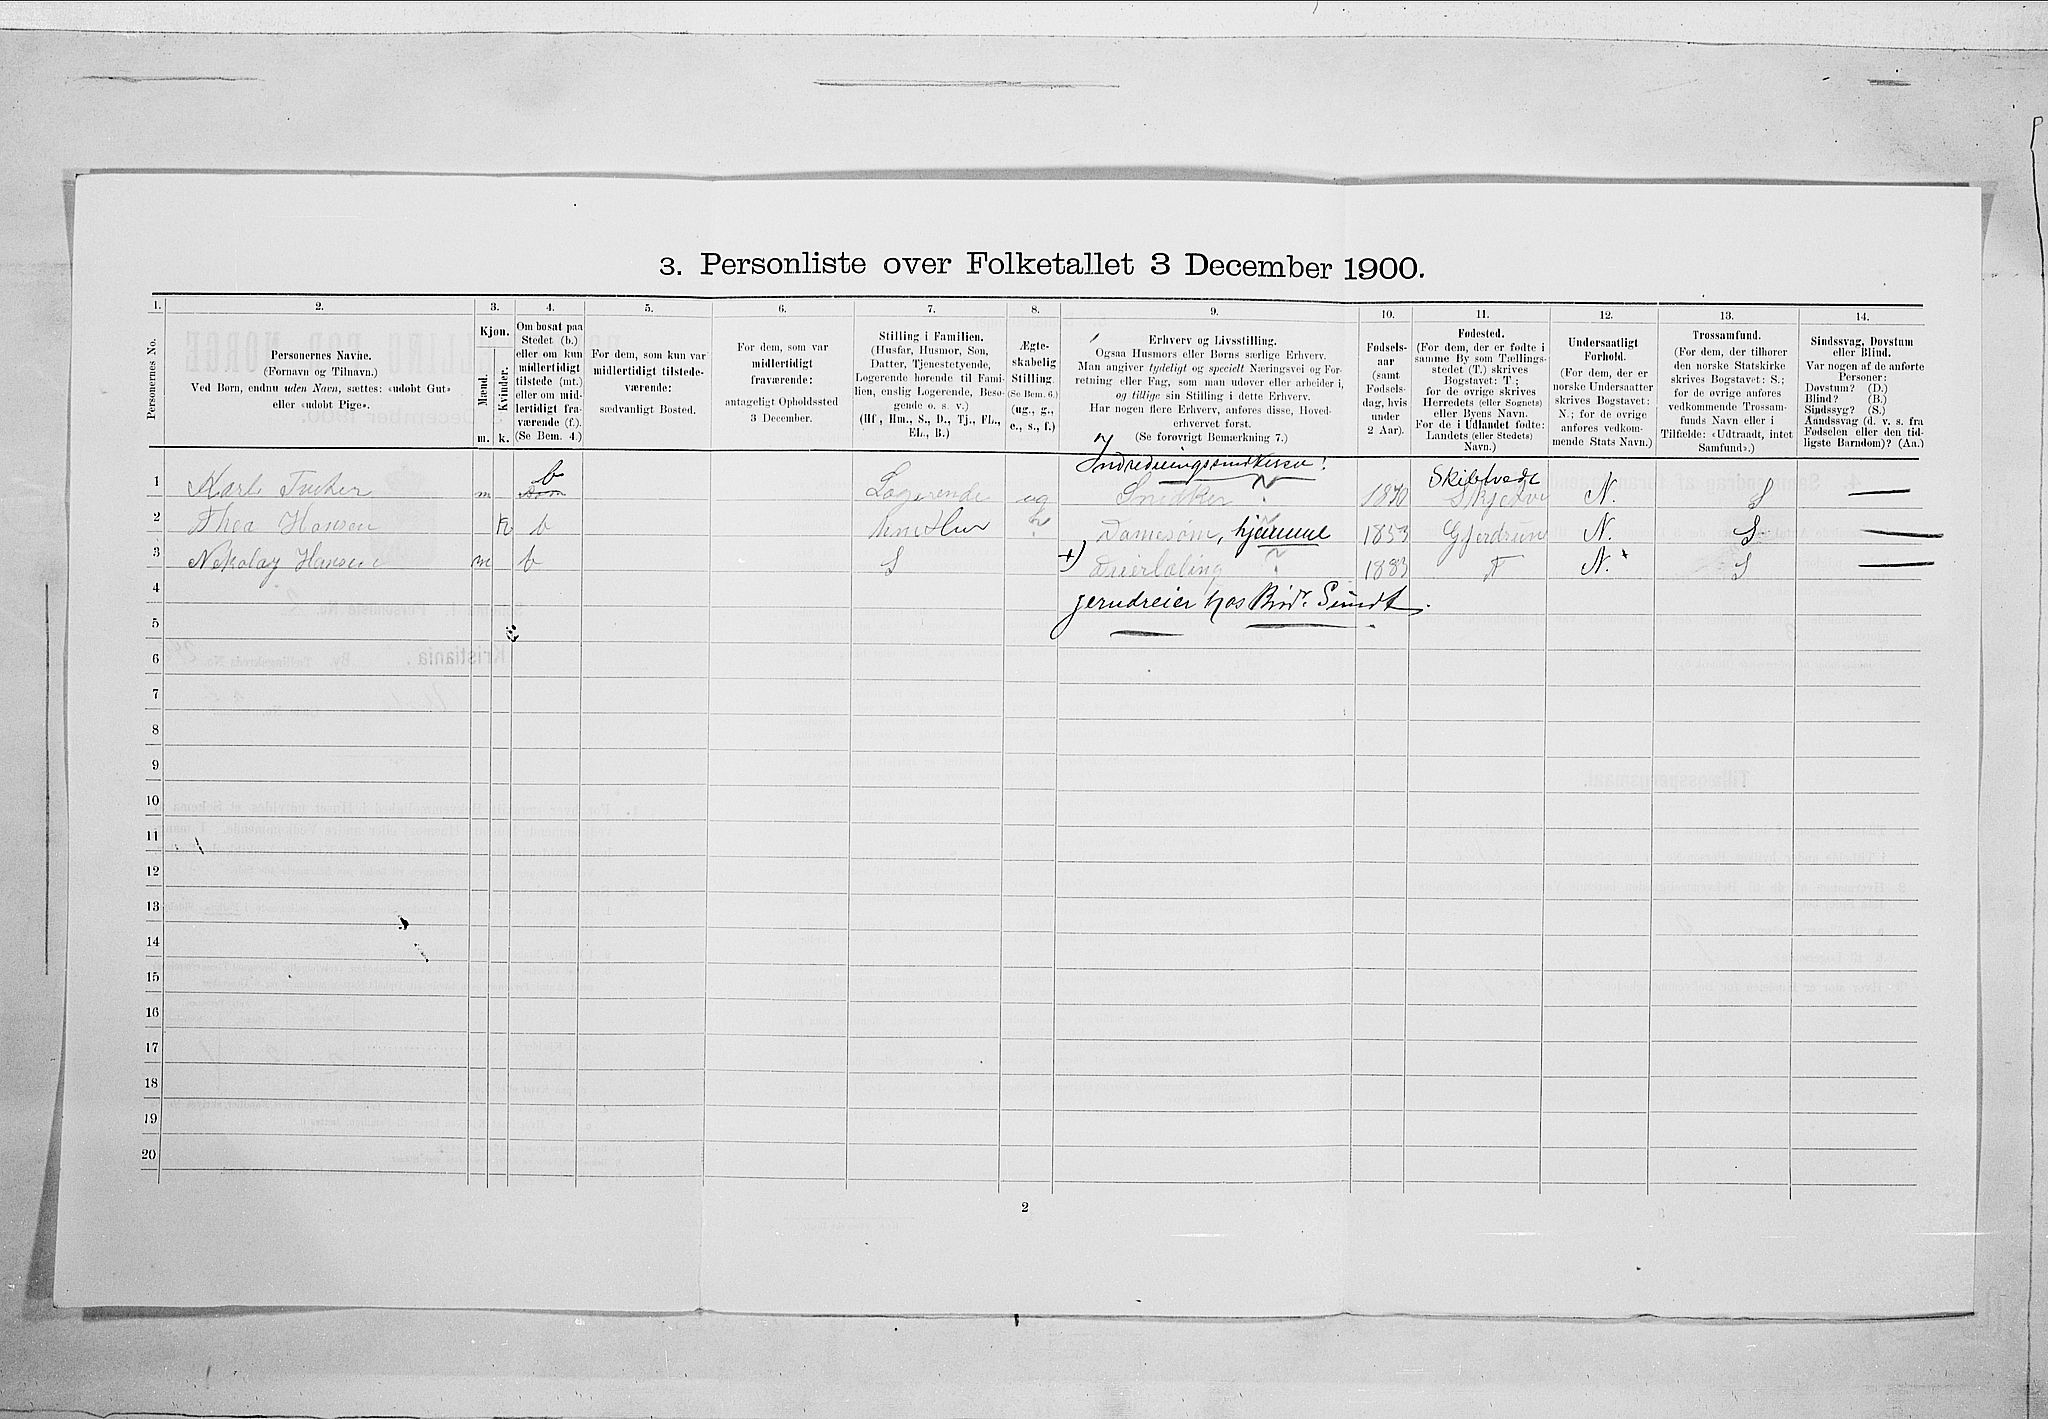 3. Personliste over Folketallet 3 December 1900.
1. 2. 3. 4. 5. 6. 7. 8. 9. 10. 11. 12. 13. 14.
Personernes No.
Personernes Navne.
(Fornavn og Tilnavn.)
Ved Børn, endnu uden Navn, sættes: «udøbt Gut»
eller «udøbt Pige».
Kjøn.
Mænd.
Kvinder.
m. k.
Om bosat paa
Stedet (b.)
eller om kun
midlertidigt
tilstede (mt.)
eller om mid-
lertidigt fra-
værende (f.).
(Se Bem. 4.)
For dem, som kun var
midlertidigt tilstede-
værende:
sædvanligt Bosted.
For dem, som var
midlertidigt
fraværende:
antageligt Opholdssted
3 December.
Stilling i Familien.
(Husfar, Husmor, Søn,
Datter, Tjenestetyende,
Logerende hørende til Fami-
lien, enslig Logerende, Besø-
gende o. s. v.)
(Hf., Hm., S., D., Tj., FL.,
EL., B.)
Ægte-
skabelig
Stilling.
(Se Bem. 6.)
(ug., g.,
e., s., f.)
Erhverv og Livsstilling.
Ogsaa Husmors eller Børns særlige Erhverv.
Man angiver tydeligt og specielt Næringsvei og For-
retning eller Fag, som man udøver eller arbeider i,
og tillige sin Stilling i dette Erhverv.
Har nogen flere Erhverv, anføres disse, Hoved-
erhvervet først.
(Se forøvrigt Bemærkning 7.)
Fødsels-
aar
(samt
Fødsels-
dag, hvis
under
2 Aar).
Fødested.
(For dem, der er fødte i
samme By som Tællings-
stedet (T.) skrives
Bogstavet: T;
for de øvrige skrives
Herredets (eller Sognets)
eller Byens Navn.
For de i Udlandet fødte:
Landets (eller Stedets)
Navn.)
Undersaatligt
Forhold.
(For dem, der er
norske Undersaatter
skrives Bogstavet:
N.; for de øvrige
anføres vedkom-
mende Stats Navn.)
Trossamfund.
(For dem, der tilhører
den norske Statskirke
skrives Bogstavet: S.;
for de øvrige anføres
vedkommende Trossam-
funds Navn eller i
Tilfælde: «Udtraadt, intet
Samfund».)
Sindssvag, Døvstum
eller Blind.
Var nogen af de anførte
Personer:
Døvstum? (D.)
Blind? (B.)
Sindssyg? (S.)
Aandssvag (d. v. s. fra
Fødselen eller den tid-
ligste Barndom)? (Aa.)
b Skibtvedt
1 Karl m Logerende ug Snedker 1870 N. S —
2 Thea Hansen k b Damesøm, hjemme 1853 Gjerdrum N. S —
3 Nekolay Hansen m b S 1883 T N. S —
4 jerndreier hos Brdr. Sundt.
5
6
7
8
9
10
11
12
13
14
15
16
17
18
19
20
2